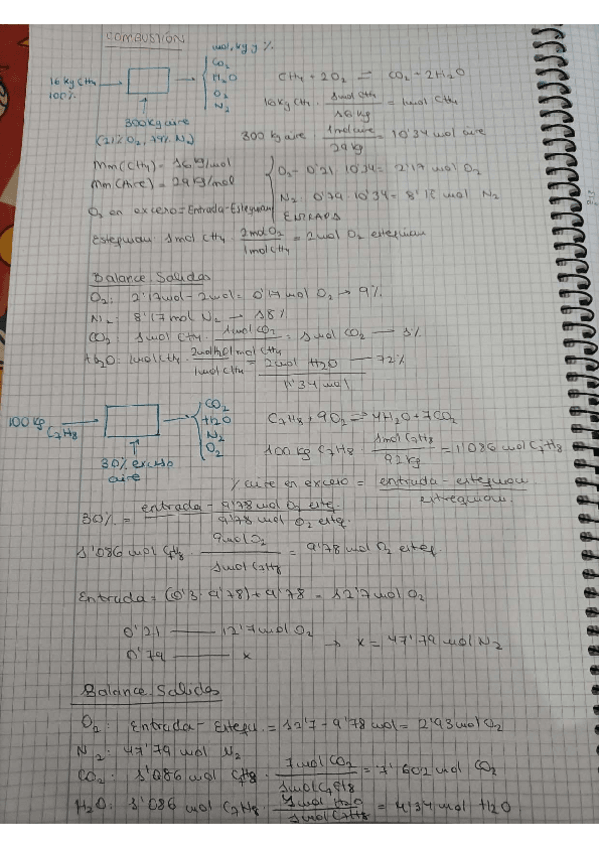 COMBUSTIÓN
mol, kg y %
16 kg CH4
100%
CO2
H2O
O2
N2
300 kg aire
(21% O2, 79% N2)
CH4 + 2O2 = CO2 + 2H2O
16 kg CH4 · 1mol CH4 / 16 kg = 1mol CH4
300 kg aire · 1mol aire / 29 kg = 10'34 mol aire
Mm (CH4) = 16 kg/mol
Mm (Aire) = 29 kg/mol
O2 = 0'21 · 10'34 = 2'17 mol O2
N2 : 0'79 · 10'34 = 8'17 mol N2
ENTRADA
O2 en exceso = Entrada - Estequiom
Estequiom: 1mol CH4 · 2mol O2 / 1mol CH4 = 2mol O2 estequiom
Balance Salidas
O2: 2'17mol - 2mol = 0'17 mol O2 → 9%
N2: 8'17 mol N2 → 18%
CO2: 1mol CH4 · 1mol CO2 = 1mol CO2 — 1%
H2O: 1mol CH4 · 2mol H2O / 1mol CH4 = 2mol H2O — 72%
11'34 mol
100 kg
C7H8
CO2
H2O
N2
O2
30% exceso
aire
C7H8 + 9O2 → 4H2O + 7CO2
100 kg C7H8 · 1mol C7H8 / 92 kg = 1'086 mol C7H8
% aire en exceso = entrada - estequiom / estequiom.
30% = entrada - 9'78 mol O2 esteq. / 9'78 mol O2 esteq.
1'086 mol C7H8 · 9mol O2 / 1mol C7H8 = 9'78 mol O2 esteq.
Entrada = (0'3 · 9'78) + 9'78 = 12'7 mol O2
0'21 — 12'7mol O2
0'79 — x → x = 47'79 mol N2
Balance Salidas
O2: Entrada - Estequ. = 12'7 - 9'78 mol = 2'93 mol O2
N2: 47'79 mol N2
CO2: 1'086 mol C7H8 · 7mol CO2 / 1mol C7H8 = 7'602 mol CO2
H2O: 1'086 mol C7H8 · 4mol H2O / 1mol C7H8 = 4'34 mol H2O